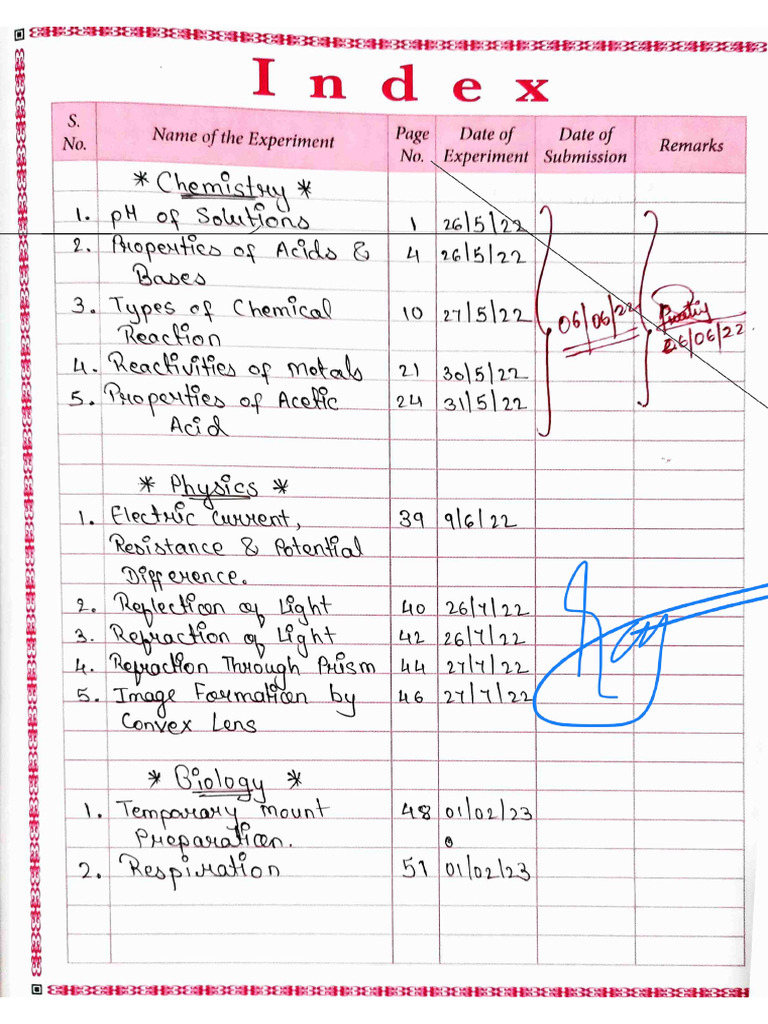 Index
S. No. Name of the Experiment Page No. Date of Experiment Date of Submission Remarks
* Chemistry *
1. pH of Solutions 1 26/5/22
2. Properties of Acids & 4 26/5/22
Bases
3. Types of Chemical 10 27/5/22 06/06/22
Reaction 6/06/22
4. Reactivities of Metals 21 30/5/22
5. Properties of Acetic 24 31/5/22
Acid
* Physics *
1. Electric Current, 39 9/6/22
Resistance & Potential
Difference.
2. Reflection of Light 40 26/7/22
3. Refraction of Light 42 26/7/22
4. Refraction Through Prism 44 27/7/22
5. Image Formation by 46 27/7/22
Convex Lens
* Biology *
1. Temporary Mount 48 01/02/23
Preparation.
2. Respiration 51 01/02/23